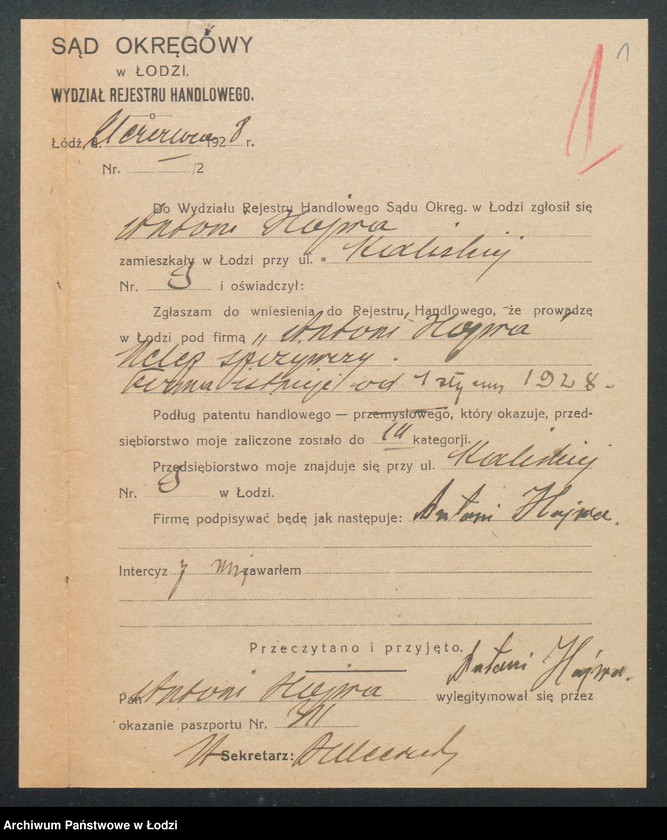 1
1
SĄD OKRĘGOWY
w ŁODZI.
WYDZIAŁ REJESTRU HANDLOWEGO.
Łódź, d. czerwca 1928 r.
Nr. /2
Do Wydziału Rejestru Handlowego Sądu Okręg. w Łodzi zgłosił się
Antoni Hajwa
zamieszkały w Łodzi przy ul. Kaliskiej
Nr. i oświadczył:
Zgłaszam do wniesienia do Rejestru Handlowego, że prowadzę
w Łodzi pod firmą „Antoni Hajwa"
sklep spożywczy.
firma istnieje od 1 stycznia 1928.
Podług patentu handlowego — przemysłowego, który okazuje, przed-
siębiorstwo moje zaliczone zostało do III kategorji.
Przedsiębiorstwo moje znajduje się przy ul. Kaliskiej
Nr. w Łodzi.
Firmę podpisywać będę jak następuje: Antoni Hajwa.
Intercyzy nie zawarłem
Przeczytano i przyjęto.
Antoni Hajwa.
Pan Antoni Hajwa wylegitymował się przez
okazanie paszportu Nr.
Sekretarz:
Archiwum Państwowe w Łodzi